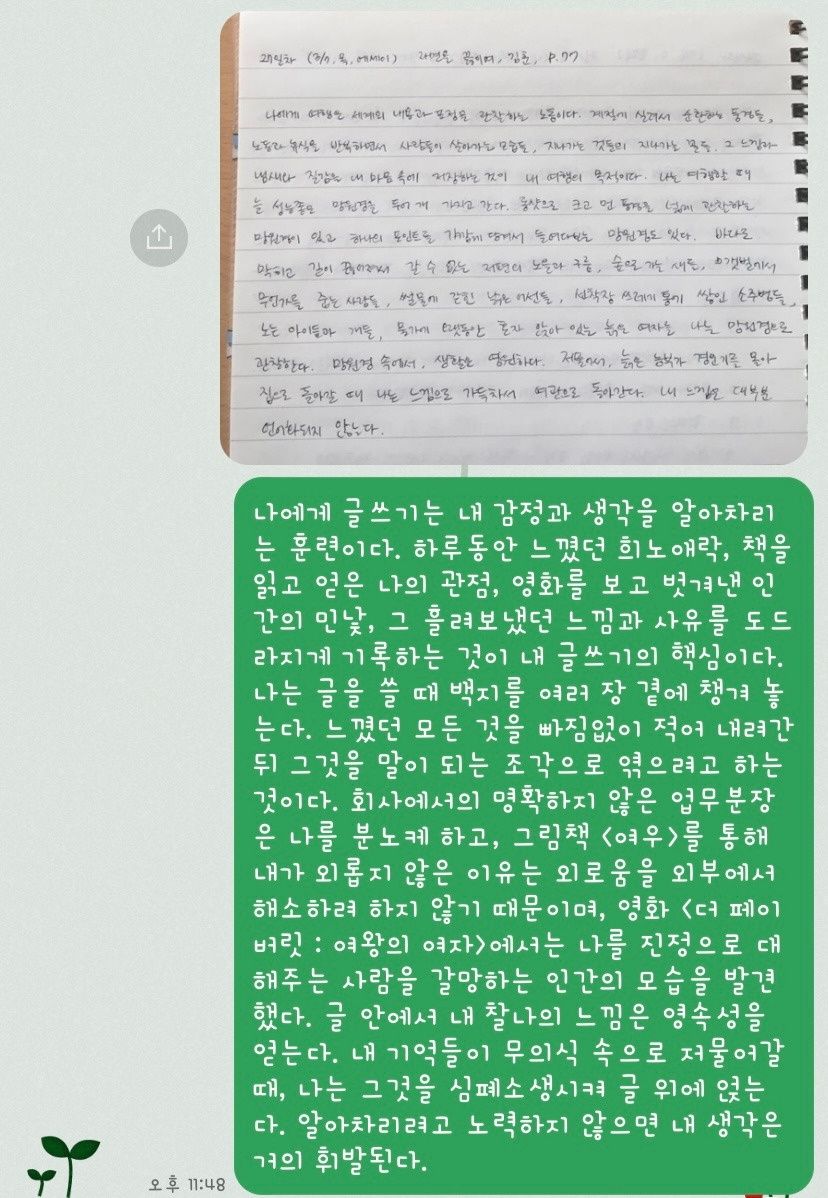 27일차 (3/7, 목, 에세이) 라면을 끓이며, 김훈, p.77
나에게 여행은 세계의 내용과 표정을 관찰하는 노동이다. 계절에 실려서 순환하는 풍경들,
노동과 휴식을 반복하면서 사람들이 살아가는 모습들, 지나가는 것들의 지나가는 꼴들, 그 느낌과
냄새와 질감을 내 마음 속에 저장하는 것이 내 여행의 목적이다. 나는 여행할 때
늘 성능좋은 망원경을 두어 개 가지고 간다. 롱샷으로 크고 먼 풍경을 넓게 관찰하는
망원경이 있고 하나의 포인트를 가깝게 당겨서 들여다보는 망원경도 있다. 바다로
막히고 길이 끊어져서 갈 수 없는 저편의 노을과 구름, 숲으로 가는 새들, 갯벌에서
무언가를 줍는 사람들, 썰물에 갇힌 낡은 어선들, 선착장 쓰레기 통에 쌓인 소주병들,
노는 아이들과 개들, 물가에 오랫동안 혼자 앉아 있는 늙은 여자를 나는 망원경으로
관찰한다. 망원경 속에서, 생활은 영원하다. 저물어서, 늙은 농부가 경운기를 몰아
집으로 돌아갈 때 나는 느낌으로 가득차서 여관으로 돌아간다. 내 느낌은 대부분
언어화되지 않는다.
나에게 글쓰기는 내 감정과 생각을 알아차리
는 훈련이다. 하루동안 느꼈던 희노애락, 책을
읽고 얻은 나의 관점, 영화를 보고 벗겨낸 인
간의 민낯, 그 흘려보냈던 느낌과 사유를 도드
라지게 기록하는 것이 내 글쓰기의 핵심이다.
나는 글을 쓸 때 백지를 여러 장 곁에 챙겨 놓
는다. 느꼈던 모든 것을 빠짐없이 적어 내려간
뒤 그것을 말이 되는 조각으로 엮으려고 하는
것이다. 회사에서의 명확하지 않은 업무분장
은 나를 분노케 하고, 그림책 <여우>를 통해
내가 외롭지 않은 이유는 외로움을 외부에서
해소하려 하지 않기 때문이며, 영화 <더 페이
버릿 : 여왕의 여자>에서는 나를 진정으로 대
해주는 사람을 갈망하는 인간의 모습을 발견
했다. 글 안에서 내 찰나의 느낌은 영속성을
얻는다. 내 기억들이 무의식 속으로 저물어갈
때, 나는 그것을 심폐소생시켜 글 위에 얹는
다. 알아차리려고 노력하지 않으면 내 생각은
거의 휘발된다.
오후 11:48